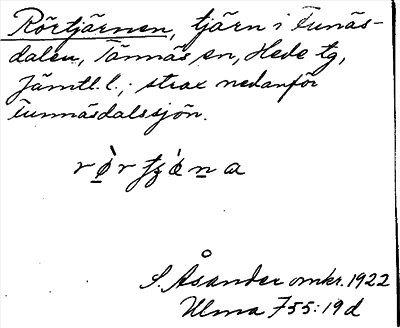 Rörtjärnen, tjärn i Funäs-
dalen, Tännäs sn, Hede tg,
Jämtl. l.; strax nedanför
Funnäsdalssjön.
S. Åsander omkr. 1922
Ulma 755:19d